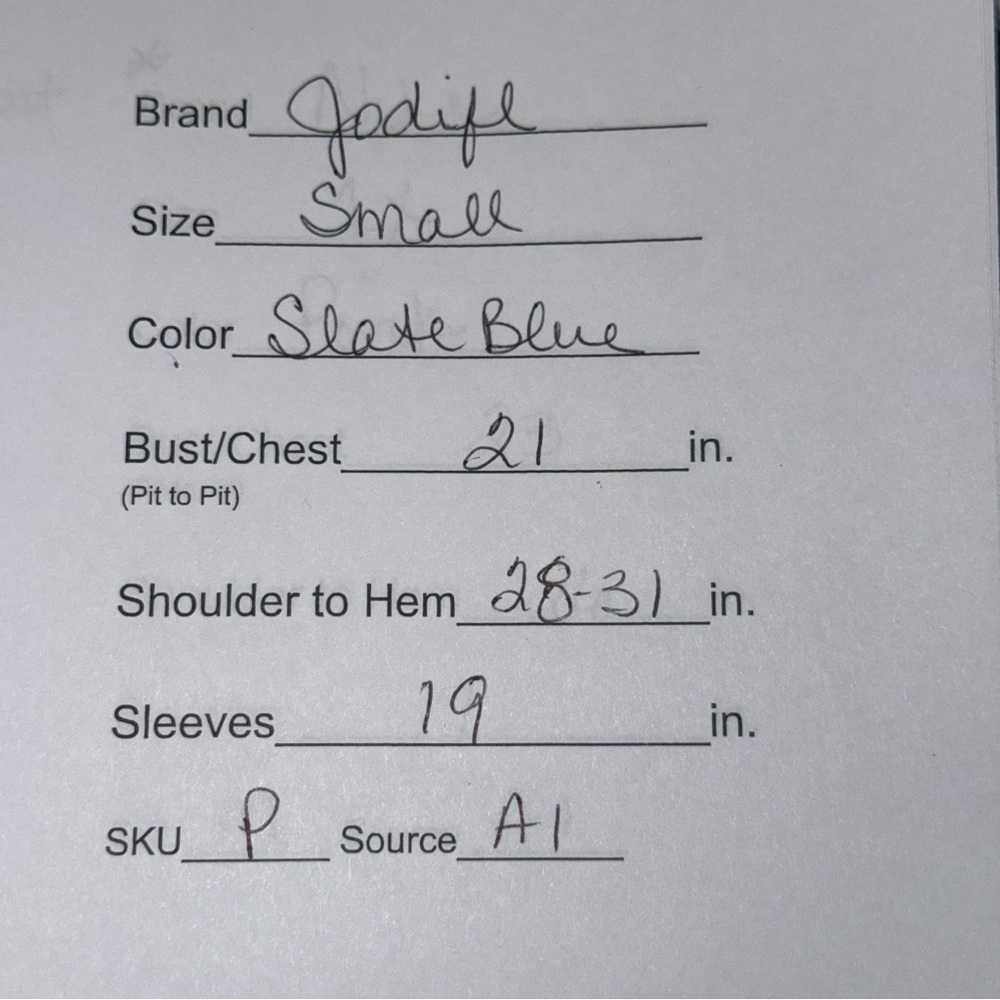 Brand Jodifl
Size Small
Color Slate Blue
Bust/Chest 21 in.
(Pit to Pit)
Shoulder to Hem 28-31 in.
Sleeves 19 in.
SKU P Source A1